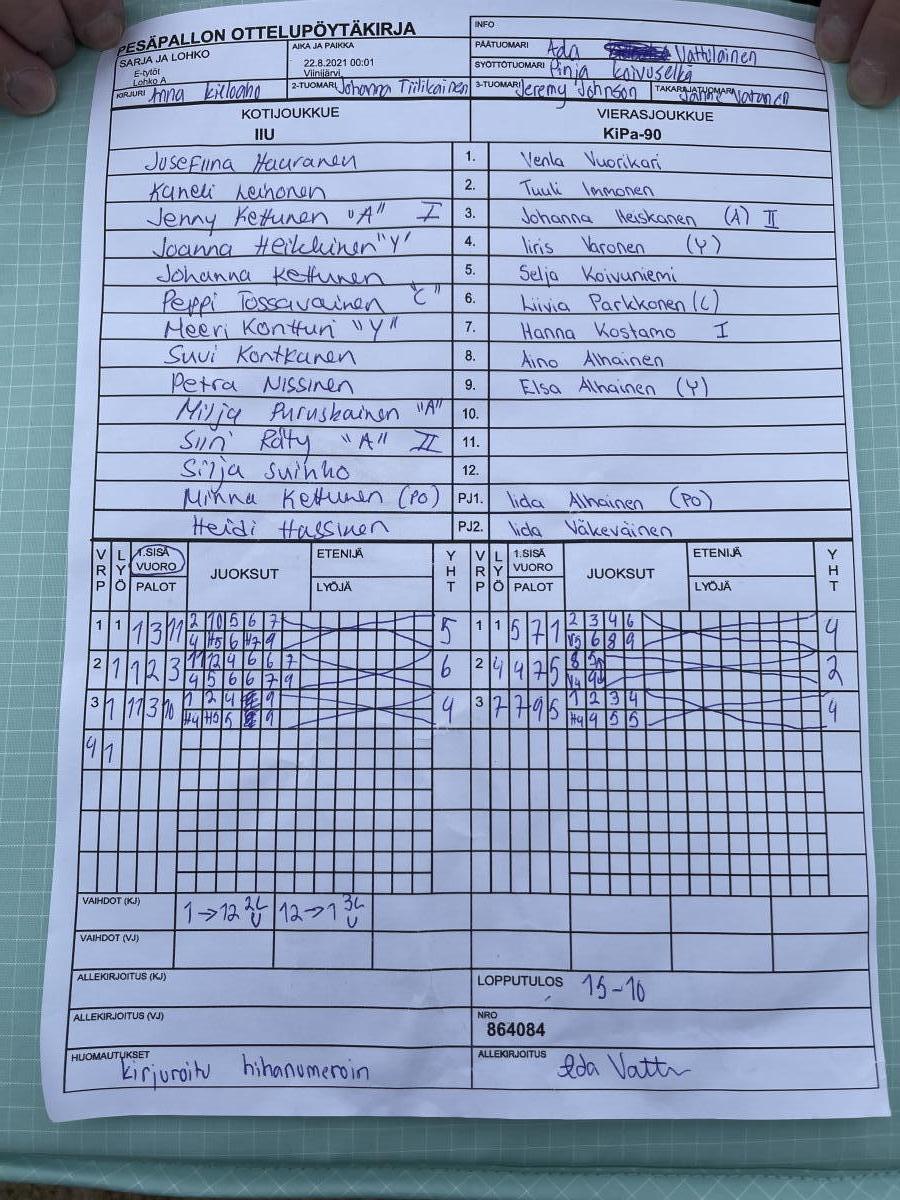 PESÄPALLON OTTELUPÖYTÄKIRJA
INFO
SARJA JA LOHKO
E-tytöt
Lohko A
AIKA JA PAIKKA
22.8.2021 00:01
Viinijärvi,
PÄÄTUOMARI Ada Vattulainen
SYÖTTÖTUOMARI Pinja Koivuselkä
KIRJURI Anna Kieloaho
2-TUOMARI Johanna Tiilikainen
3-TUOMARI Jeremy Johnson
TAKARAJATUOMARI Janne Vatanen
KOTIJOUKKUE
IIU
VIERASJOUKKUE
KiPa-90
Josefiina Hauranen 1. Venla Vuorikari
Kaneli Leinonen 2. Tuuli Immonen
Jenny Kettunen "A" I 3. Johanna Heiskanen (A) II
Joanna Heikkinen "Y" 4. Iiris Varonen (Y)
Johanna Kettunen 5. Selja Koivuniemi
Peppi Tossavainen "C" 6. Liivia Parkkonen (C)
Meeri Kontturi "Y" 7. Hanna Kostamo I
Suvi Kontkanen 8. Aino Alhainen
Petra Nissinen 9. Elsa Alhainen (Y)
Milja Puruskainen "A" 10.
Siiri Räty "A" II 11.
Silja Suihko 12.
Minna Kettunen (PO) PJ1. Iida Alhainen (PO)
Heidi Hassinen PJ2. Iida Väkeväinen
VRP LYÖ 1.SISÄ VUORO PALOT JUOKSUT ETENIJÄ LYÖJÄ YHT VRP LYÖ 1.SISÄ VUORO PALOT JUOKSUT ETENIJÄ LYÖJÄ YHT
2 10 5 6 7 2 3 4 6
1 1 1 3 11 5 1 1 5 7 1 4
4 H5 6 H7 9 V5 6 8 9
11 12 4 6 6 7 8
2 1 1 2 3 6 2 4 4 7 5 2
4 5 6 6 7 9 V4
1 2 4 9 1 2 3 4
3 1 11 3 10 4 3 7 7 9 5 4
H4 H5 5 9 H4 4 5 5
4 1
VAIHDOT (KJ) 1→12 2L U 12→1 3L U
VAIHDOT (VJ)
ALLEKIRJOITUS (KJ) LOPPUTULOS 15-10
ALLEKIRJOITUS (VJ) NRO
864084
HUOMAUTUKSET ALLEKIRJOITUS
kirjuroitu hihanumeroin